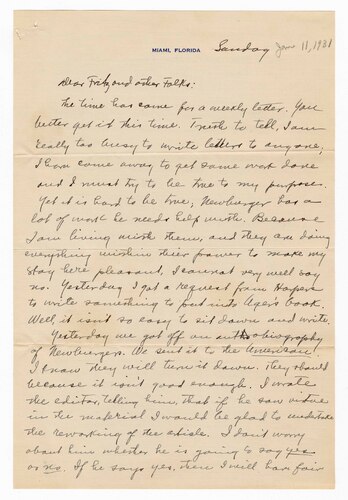 MIAMI, FLORIDA
Sunday Jan 11, 1931
Dear Fritz and other Folks:
The time has come for a weekly letter. You
better get it this time. Truth to tell, I am
really too busy to write letters to anyone;
I have come away to get some work done
and I must try to be true to my purpose.
Yet it is hard to be true, Newburger has a
lot of work he needs help with. Because
I am living with them, and they are doing
everything within their power to make my
stay here pleasant, I cannot very well say
no. Yesterday I got a request from Harpers
to write something to put into Agers book.
Well, it isn't so easy to sit down and write.
Yesterday we got off an autobiography
of Newburgers. We sent it to the American.
I know they will turn it down. They should
because it isn't good enough. I wrote
the editor, telling him, that if he saw value
in the material I would be glad to undertake
the reworking of the article. I don't worry
about him whether he is going to say yes
or no. If he says yes, then I will have fair